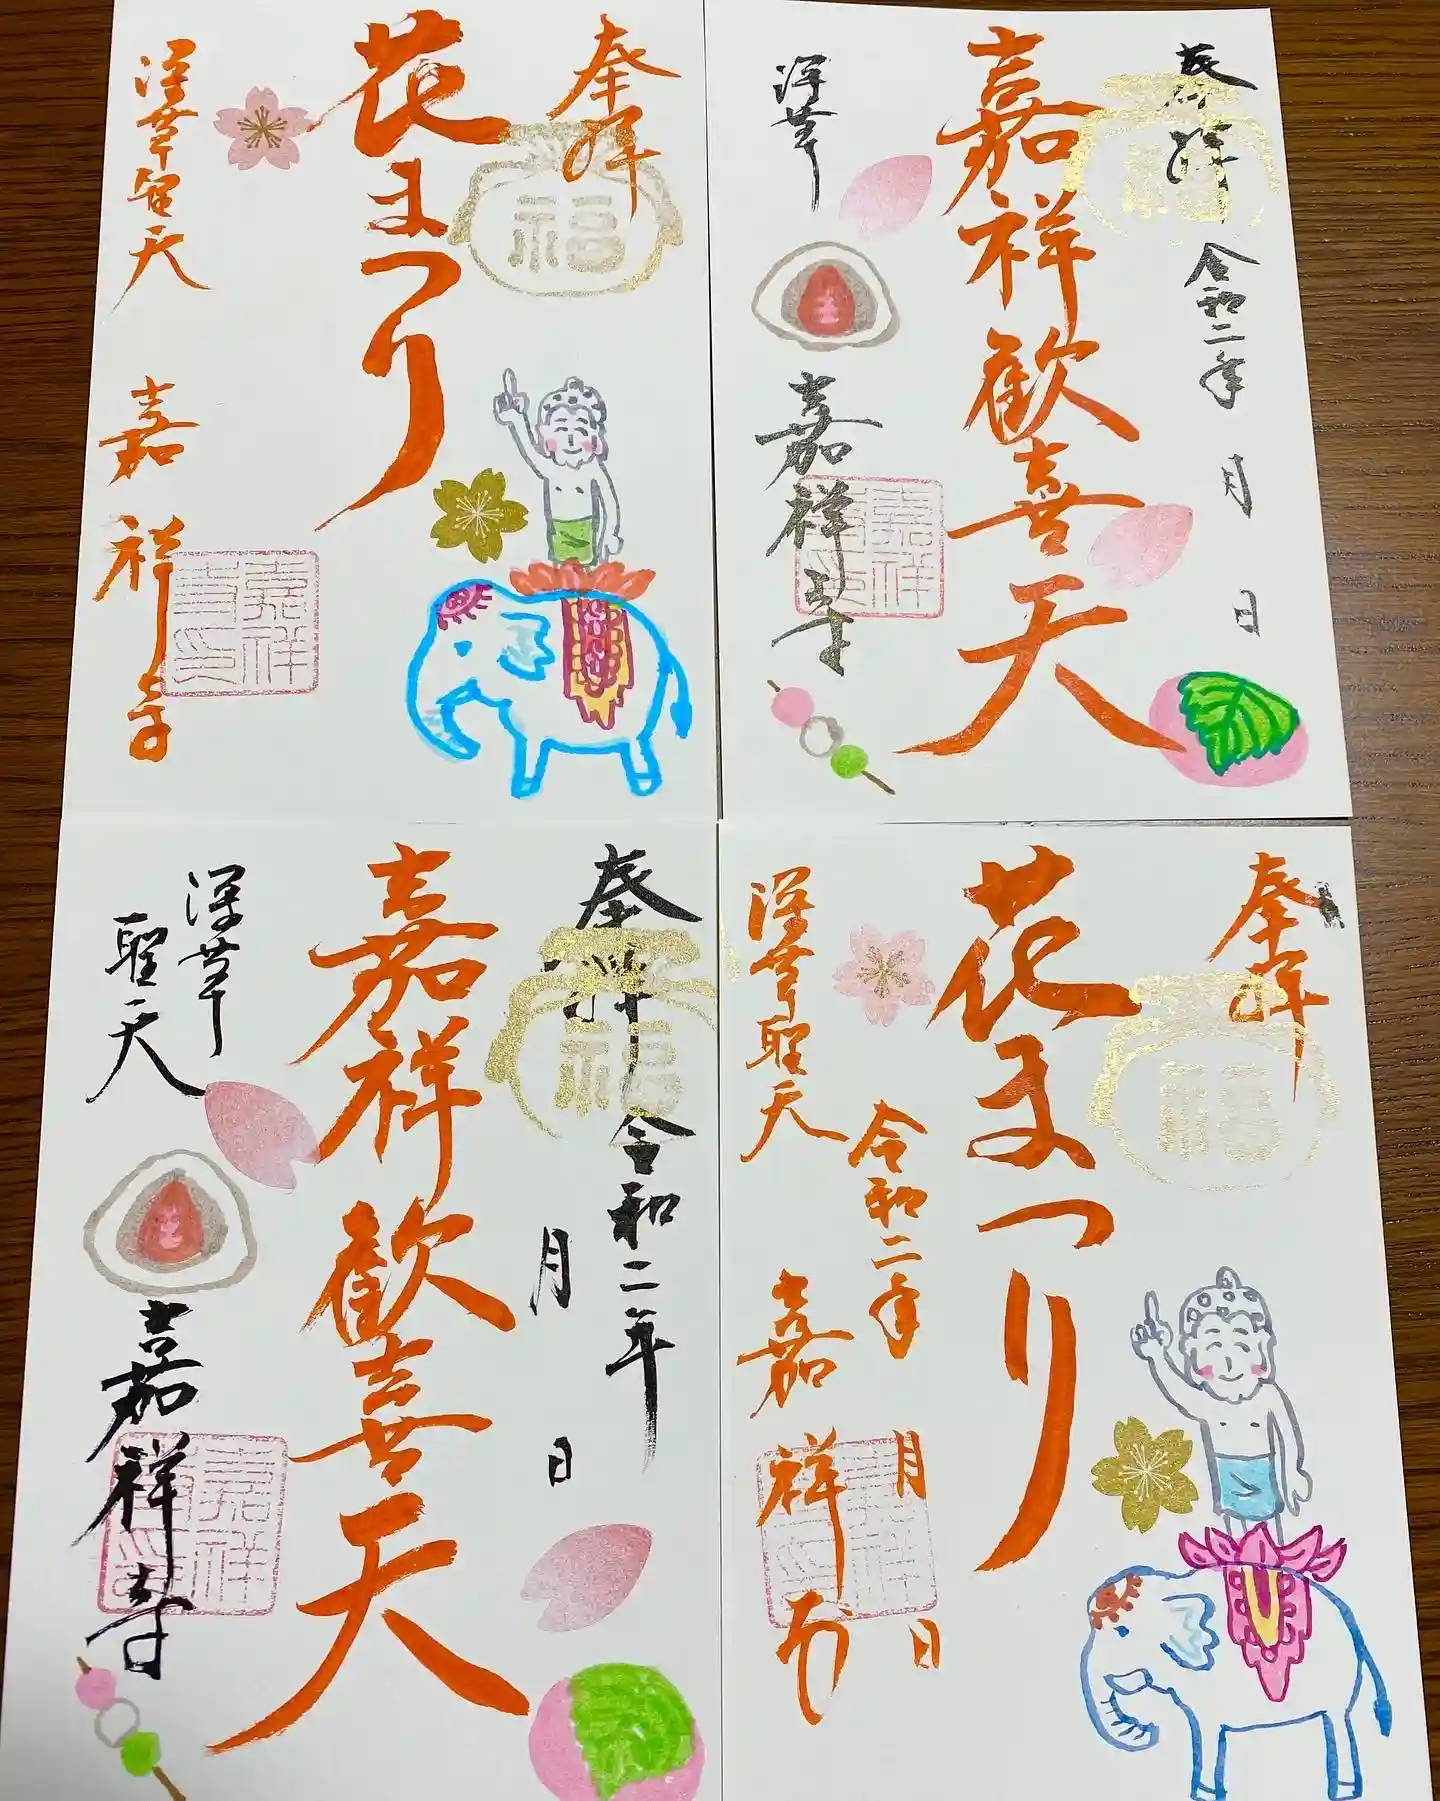 奉拝
福
花まつり
深草聖天
嘉祥寺
嘉祥寺印
奉拝
令和二年
月
日
福
嘉祥歓喜天
深草
嘉祥寺
嘉祥寺印
奉拝
令和二年
月
日
福
嘉祥歓喜天
深草
聖天
嘉祥寺
嘉祥寺印
奉拝
福
花まつり
令和二年
月
日
深草聖天
嘉祥寺
嘉祥寺印